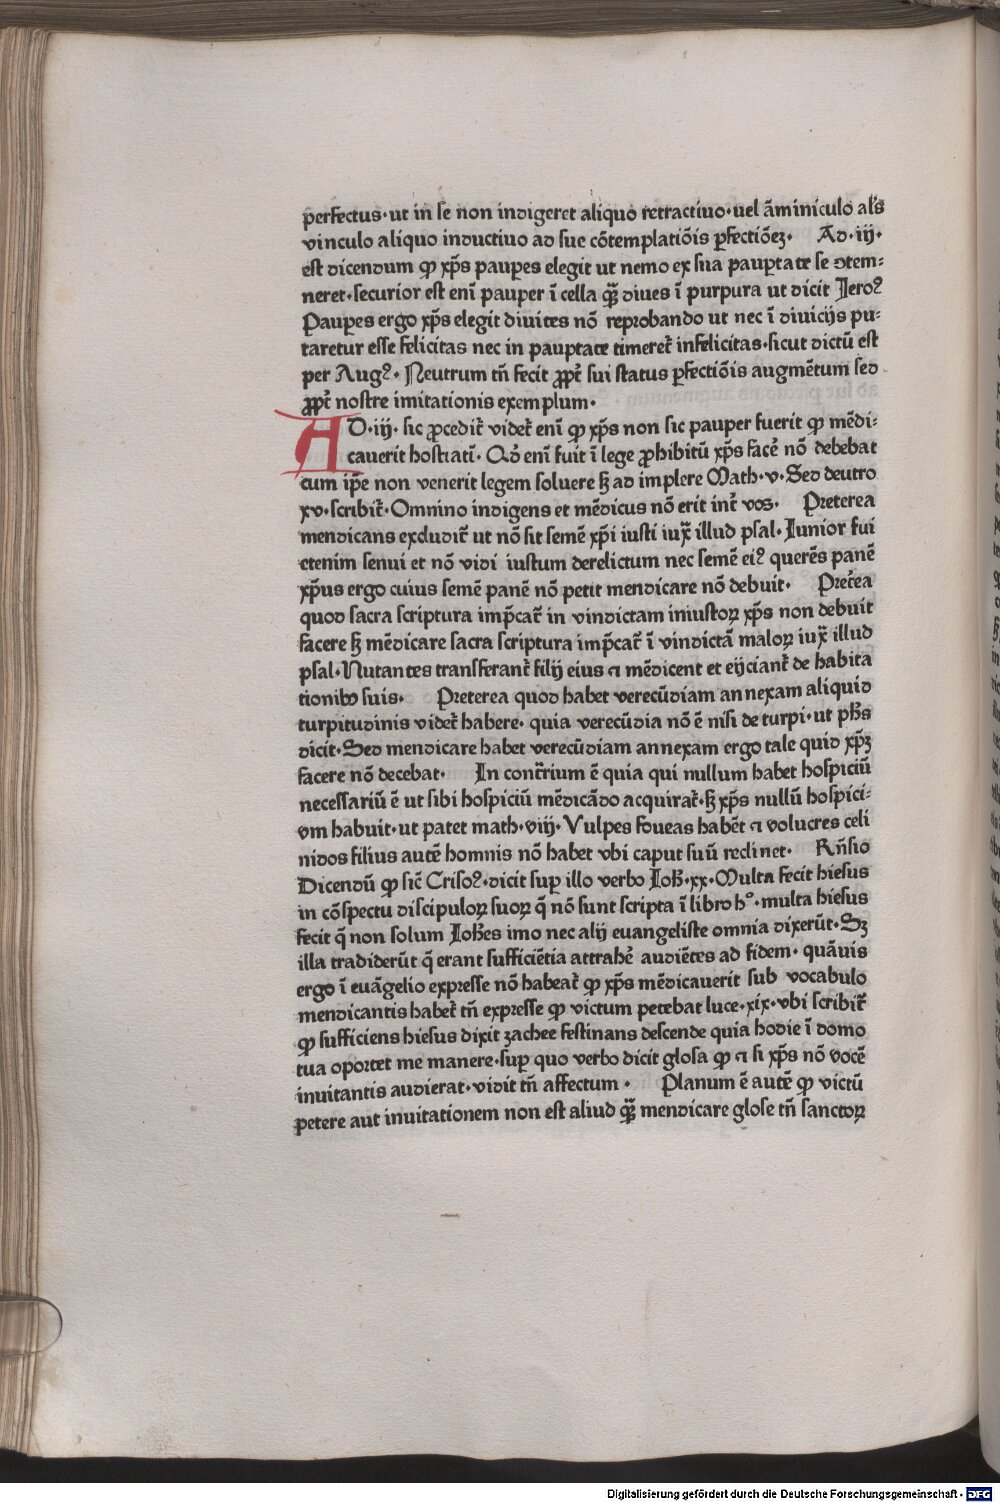 ꝑerfectus·ut in se non indigeret aliquo retractiuo·uel āminiculo al's
vinculo aliquo inductiuo ad sue cōtemplatiōis ꝑfectiōeꝫ· Ad·iij·
est dicendum ꝙ xp̄s pauꝑes elegit ut nemo ex sua pauꝑtate se ↄtem⸗
neret·securior est eni̅ pauper ī cella qꝫ̄ diues ī purpura ut dicit Jeroꝰ
Pauꝑes ergo xp̄s elegit diuites nō reprobando ut nec ī diuicijs pu⸗
taretur esse felicitas nec in pauꝑtate timeret᷑ infelicitas·sicut dictū est
per Augꝰ· Neutrum tn̄ fecit ꝓpt᷑ sui status ꝑfectiōis augmētum sed
ꝓpt᷑ nostre imitationis exemplum·
AD·iij· sic ꝓcedit᷑ videt᷑ eni̅ ꝙ xp̄s non sic pauper fuerit ꝙ mēdi⸗
cauerit hostiati̅· Qd̄ eni̅ fuit ī lege ꝓhibitū xp̄s face᷑ nō debebat
cum ip̄e non venerit legem soluere sꝫ ad implere Math·v·Sed deutro
xv·scribit᷑·Omnino indigens et mēdicus nō erit int᷑ vos· Preterea
mendicans excludit᷑ ut nō sit semē xp̄i iusti iux̄ illud psal·Iunior fui
etenim senui et nō vidi iustum derelictum nec semē eiꝰ querēs panē
xp̄us ergo cuius semē panē nō petit mendicare nō debuit· Pret᷑ea
quod sacra scriptura imp̄cat᷑ in vindictam iniustoꝝ xp̄s non debuit
facere sꝫ mēdicare sacra scriptura imp̄cat᷑ ī vindictā maloꝝ iux̄ illud
psal·Nutantes transferant᷑ filij eius ⁊ mēdicent et eijciant᷑ de habita
tionibꝰ suis· Preterea quod habet verecūdiam annexam aliquid
turpitudinis videt᷑ habere· quia verecūdia nō ē nisi de turpi·ut ph̄s
dicit·Sed mendicare habet verecūdiam annexam ergo tale quid xp̄ꝫ
facere nō decebat· In cont᷑rium ē quia qui nullum habet hospiciū
necessariū ē ut sibi hospiciū mēdicādo acquirat᷑·sꝫ xp̄s nullū hospici⸗
vm habuit·ut patet math·viij·Vulpes foueas habēt ⁊ volucres celi
nidos filius autē homnis nō habet vbi caput suū reclinet· Rn̄sio
Dicendū ꝙ sic̄ Crisoꝰ·dicit suꝑ illo verbo Joh̄·xx·Multa fecit hiesus
in cōspectu discipuloꝝ suoꝝ q̄ nō sunt scripta ī libro hº·multa hiesus
fecit q̄ non solum Joh̄es imo nec alij euangeliste omnia dixerūt·Sꝫ
illa tradiderūt q̄ erant sufficiētia attrahe᷑ audiētes ad fidem· quāuis
ergo ī euāgelio expresse nō habeat᷑ ꝙ xp̄s mēdicauerit sub vocabulo
mendicantis habet᷑ tn̄ expresse ꝙ victum petebat luce·xix·vbi scribit᷑
ꝙ sufficiens hiesus dixit zachee festinans descende quia hodie ī domo
tua oportet me manere·suꝑ quo verbo dicit glosa ꝙ ⁊ si xp̄s nō vocē
inuitantis audierat·vidit tn̄ affectum· Planum ē autē ꝙ victū
petere aut inuitationem non est aliud qꝫ̄ mendicare glose tn̄ sanctoꝝ
Digitalisierung gefördert durch die Deutsche Forschungsgemeinschaft - DFG